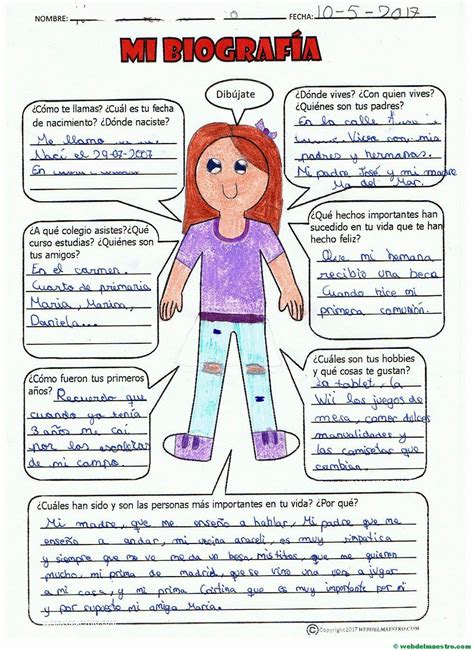 NOMBRE: FECHA: 10-5-2017
MI BIOGRAFÍA
Dibújate
¿Cómo te llamas? ¿Cuál es tu fecha
de nacimiento? ¿Dónde naciste?
Me llamo
Nací el 29-07-2007
En
¿Dónde vives? ¿Con quien vives?
¿Quiénes son tus padres?
En la calle
Vivo con mis
padres y hermanas.
Mi padre José y mi madre
Ma del Mar.
¿A qué colegio asistes?¿Qué
curso estudias? ¿Quiénes son
tus amigos?
En el carmen.
Cuarto de primaria
Maria, Marina,
Daniela...
¿Qué hechos importantes han
sucedido en tu vida que te han
hecho feliz?
Que mi hemana
recibio una beca
Cuando hice mi
primera comunión.
¿Cómo fueron tus primeros
años?
Recuerdo que
cuando ya tenía
3 años me caí
por las escaleras
de mi campo.
¿Cuáles son tus hobbies
y qué cosas te gustan?
la tablet, la
Wii los juegos de
mesa, comer dulces
manualidades y
las camisetas que
cambian.
¿Cuáles han sido y son las personas más importantes en tu vida? ¿Por qué?
Mi madre, que me enseño a hablar, Mi padre que me
enseño a andar, mi vecina araceli, es muy simpatica
y siempre que me ve me da un beso, Mis titos, que me quieren
mucho, mi prima de madrid, que se vino una vez a jugar
a mi casa, y mi prima Cristina que es muy importante por mi
y por supuesto mi amiga María.
©Copyright 2017 WEBDELMAESTRO.COM
© webdelmaestro.com